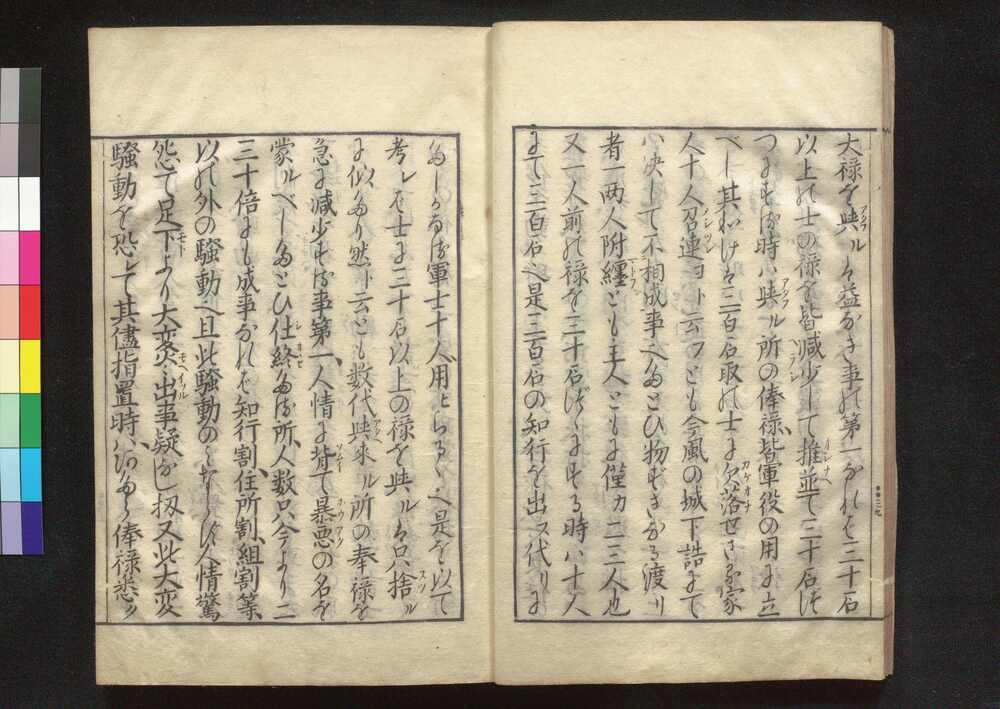 大禄を與ルは益なき事の第一なれは三十石
以上の士の禄を皆減少して推並て三十石つゝ
つにする時ハ與ル所の俸禄皆軍役の用に立
べし其わけは三百石取の士に欠落せさる家
人十人召連ヨト云フとも今風の城下詰にて
ハ決して不相成事也たとひ物ずきなる渡リ
者一両人附纏とも主人ともに僅カ二三人也
又一人前の禄を三十石つゝにする時ハ十人
にて三百石也是三百石の知行を出ス代りに
たしかなる軍士十人用ヒらるゝ也是を以て
考レは士に三十石以上の禄を與ルは只捨ル
に似たり然ト云とも数代與来ル所の奉禄を
急に減少する事第一人情に背て暴悪の名を
蒙ルべしたとひ仕終たる所人数只今より二
三十倍にも成事なれは知行割住所割組割等
以の外の騒動也且此騒動のミならす人情驚
怨て足下より大変出事疑なし扨又此大変
騒動を恐レて其儘指置時ハ俸禄悉ク